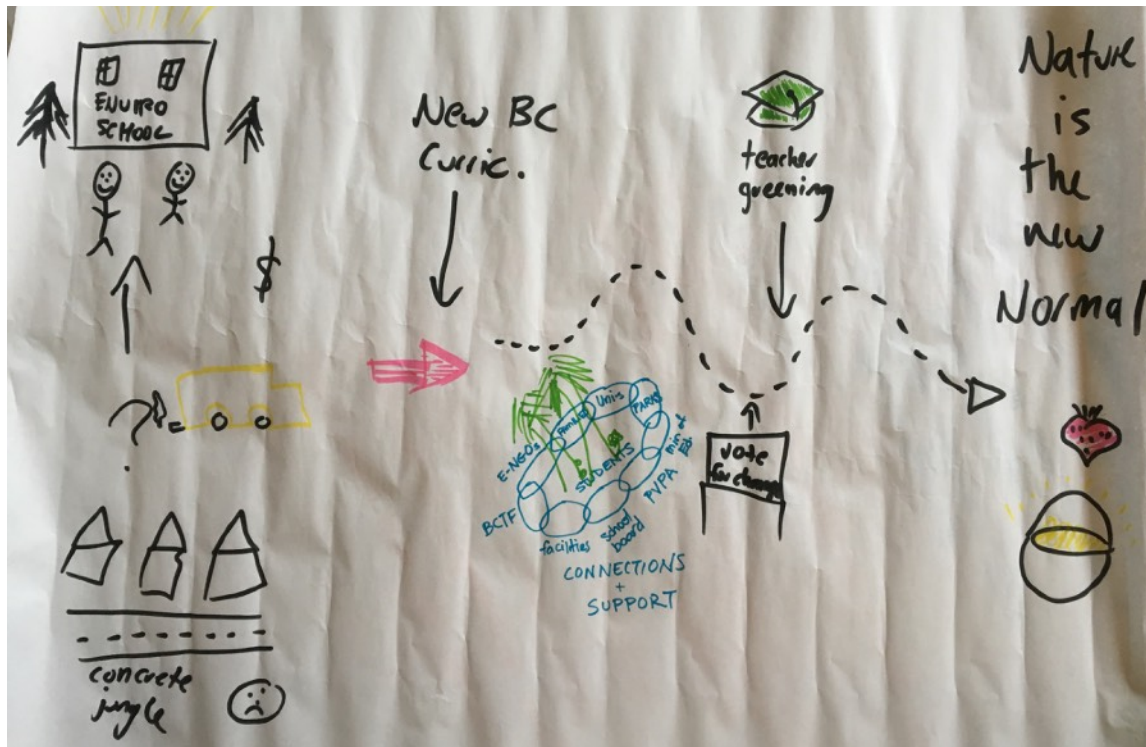 ENVIRO
SCHOOL
$
?
concrete
jungle
New BC
Curric.
Uni's
PARKS
min of
Ed
E-NGO's
STUDENTS
PVPA
BCTF
facilities
school
board
CONNECTIONS
+
SUPPORT
teacher
greening
vote
for change
Nature
is
the
new
Normal